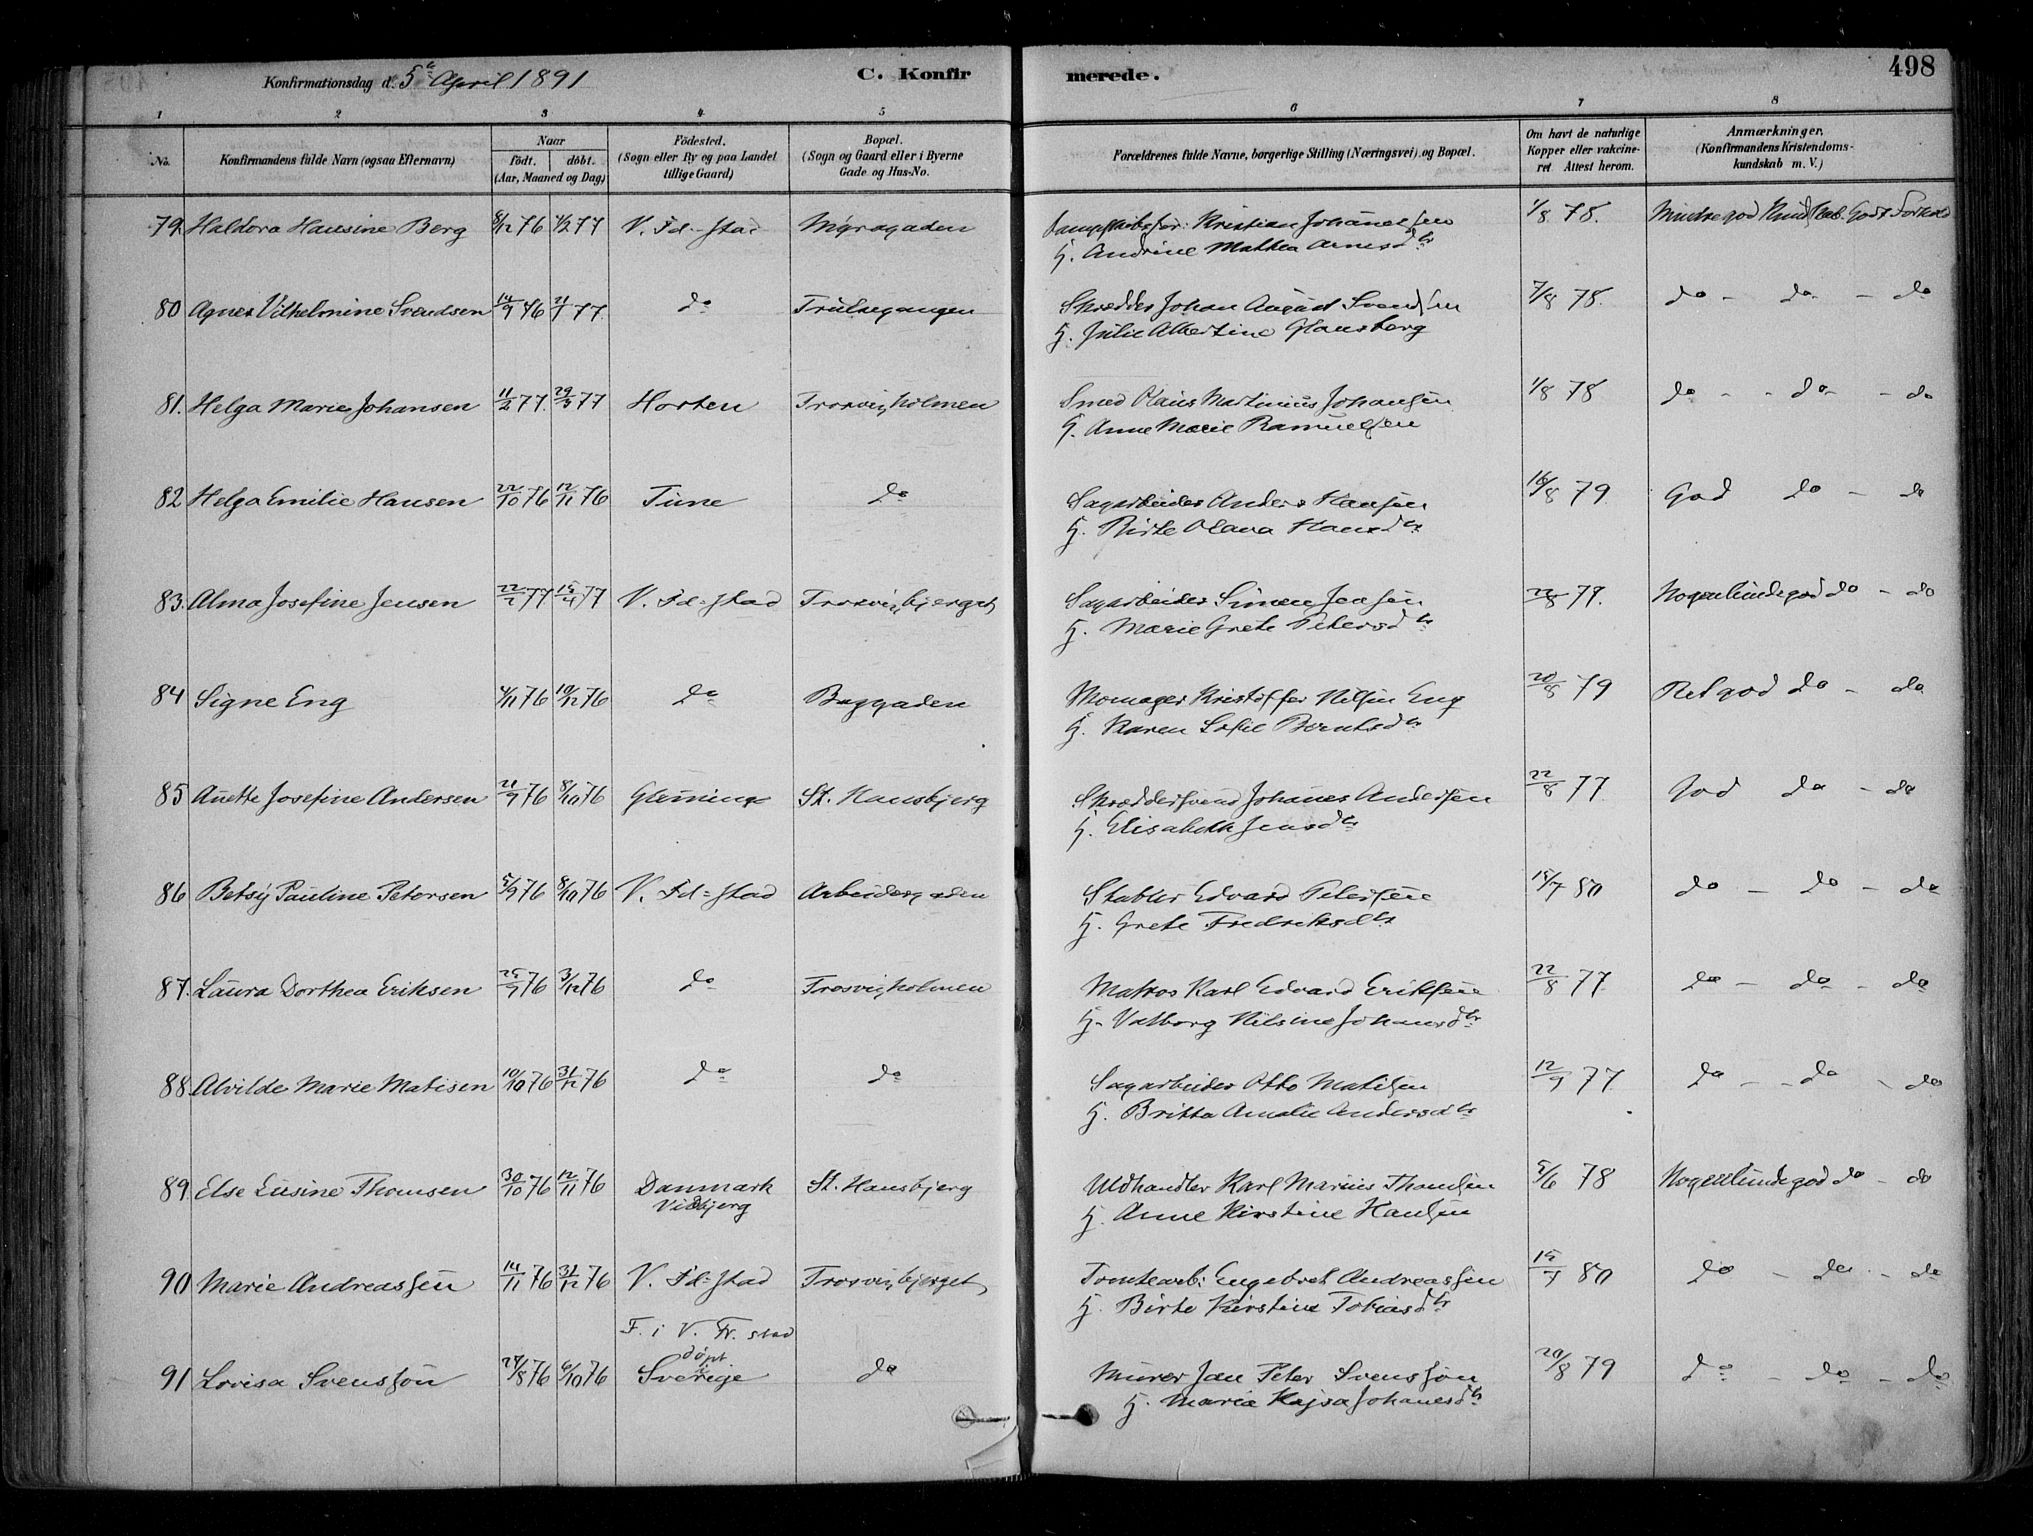 Konfirmationsdag d. 5te April 1891 C. Konfir merede. 498
1 2 3 4 5 6 7 8
No. Konfirmandens fulde Navn (ogsaa Efternavn) Naar födt. döbt. (Aar, Maaned og Dag) Födested. (Sogn eller By og paa Landet tillige Gaard) Bopæl. (Sogn og Gaard eller i Byerne Gade og Hus-No. Forældrenes fulde Navne, borgerlige Stilling (Næringsvei) og Bopæl. Om havt de naturlige Kopper eller vakcineret Attest herom. Anmærkninger, (Konfirmandens Kristendomskundskab m. V.)
79. Haldora Hansine Berg 8/12 76 1/2 77 V. Fd=stad Myragaden Kristian Johannessen 1/8 78. Mindre god Kundskab. Godt Forhold
H. Andrine Mathea Arnesdtr
80 Agnes Vilhelmine Svendsen 14/9 76 21/1 77 do Trulsegangen Skrædder Johan August Svendsen 7/8 78. do - do - do
H. Julie Albertine Glansberg
81. Helga Marie Johansen 11/2 77. 29/3 77 Horten Trosvigholmen Smed Olaus Martinius Johansen 1/8 78 do - - do - do
H. Anne Marie Ramuelsen
82 Helga Emilie Hansen 22/10 76 12/11 76 Tune do Sagarbeider Anders Hansen 16/8 79. God do - do
H. Birte Olava Hansdtr
83. Alma Josefine Jensen 22/2 77 15/4 77 V. Fd=stad Trosvigbjerget Sagarbeider Simen Jensen 22/8 79. Nogenlunde god do - do
H. Marie Grete Petersdtr
84 Signe Eng 4/11 76 10/12 76 do Baggaden Kristoffer Nilsen Eng 20/8 79 Ret god do - do
H. Karen Sofie Berntsdtr
85 Anette Josefine Andersen 21/9 76 8/10 76 Glemminge St. Hansbjerg Skræddersvend Johanes Andersen 22/8 77. God do - do
H. Elisabeth Jensdtr
86 Betsy Pauline Petersen 5/9 76 8/10 76 V. Fd=stad Arbeidergaden Stabler Edvard Petersen 15/7 80 do - do - do
H. Grete Fredriksdtr
87. Laura Dorthea Eriksen 25/9 76 3/12 76 do Trosvigholmen Matros Karl Edvard Eriksen 22/8 77. do - do - do
H. Valborg Nilsine Johansdtr
88. Alvilde Marie Matisen 10/10 76 31/12 76 do do Sagarbeider Otto Matisen 12/9 77. do - - do - do
H. Britta Amalie Andersdtr
89 Else Lusine Thomsen 30/10 76 12/11 76 Danmark St. Hansbjerg Uldhandler Karl Marius Thomsen 5/6 78 Nogenlunde god do - do
Vidbjerg H. Anne Kirstine Hansen
90 Marie Andreassen 14/11 76 31/12 76 V. Fd=stad Trosvigbjerget Tomtearb: Engebret Andreassen 15/7 80 do - do - do
H. Birte Kirstine Tobiasdtr
F. i V. Fr. stad
døpt i
91 Lovisa Svensson 27/8 76 6/10 76 Sverige do Murer Jan Peter Svensson 20/8 79 do - do - do
H. Maria Kajsa Johanesdtr